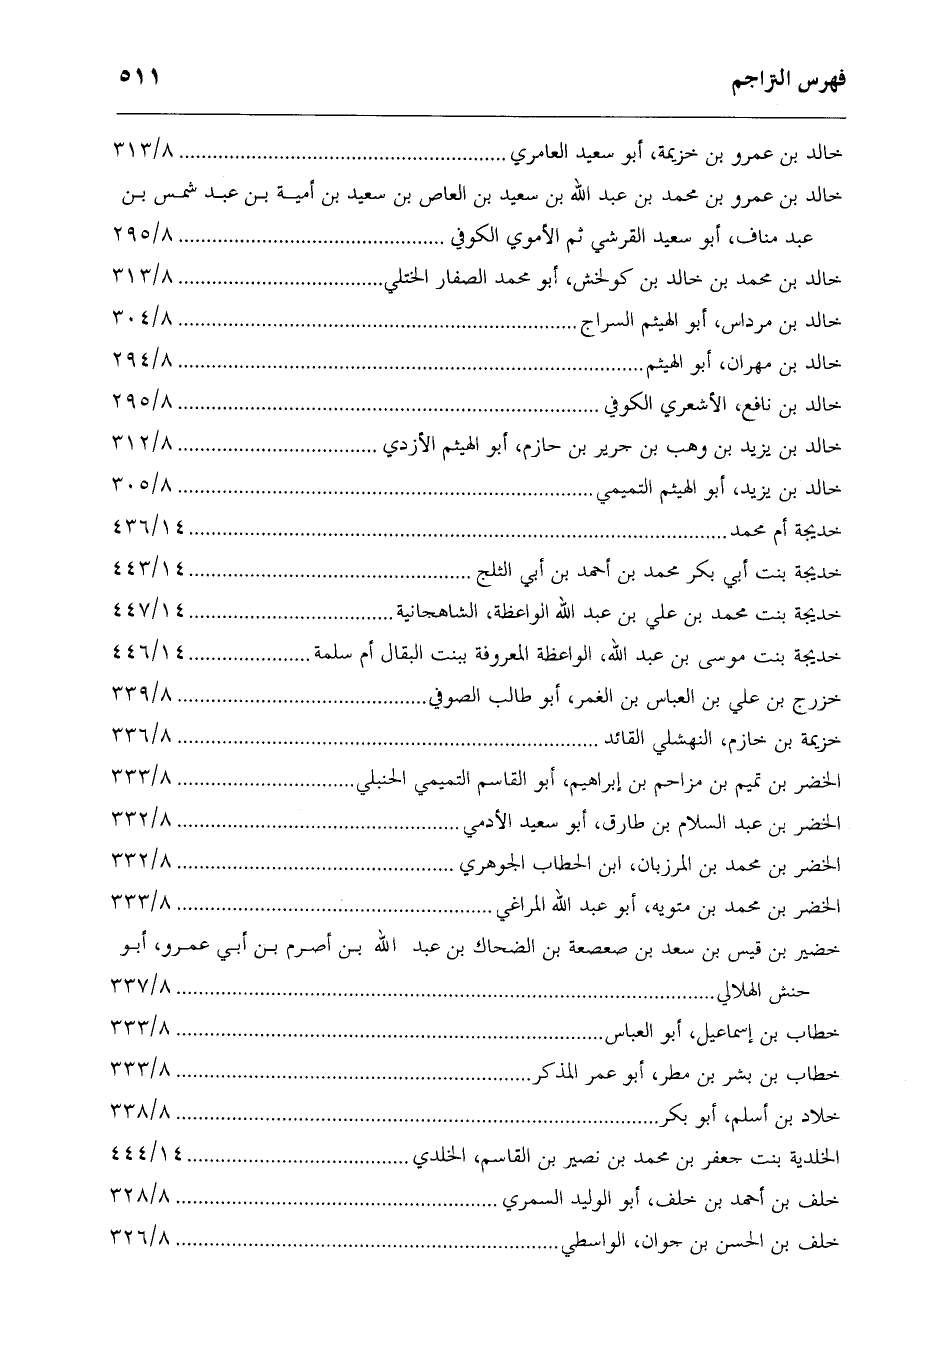 فهرس التراجم ٥١١
خالد بن عمرو بن خزيمة، أبو سعيد العامري ........ ٣١٣/٨
خالد بن عمرو بن محمد بن عبد الله بن سعيد بن العاص بن سعيد بن أمية بن عبد شمس بن
عبد مناف، أبو سعيد القرشي ثم الأموي الكوفي ........ ٢٩٥/٨
خالد بن محمد بن خالد بن كولخش، أبو محمد الصفار الختلي ........ ٣١٣/٨
خالد بن مرداس، أبو الهيثم السراج ........ ٣٠٤/٨
خالد بن مهران، أبو الهيثم ........ ٢٩٤/٨
خالد بن نافع، الأشعري الكوفي ........ ٢٩٥/٨
خالد بن يزيد بن وهب بن جرير بن حازم، أبو الهيثم الأزدي ........ ٣١٢/٨
خالد بن يزيد، أبو الهيثم التميمي ........ ٣٠٥/٨
خديجة أم محمد ........ ٤٣٦/١٤
خديجة بنت أبي بكر محمد بن أحمد بن أبي الثلج ........ ٤٤٣/١٤
خديجة بنت محمد بن علي بن عبد الله الواعظة، الشاهجانية ........ ٤٤٧/١٤
خديجة بنت موسى بن عبد الله، الواعظة المعروفة ببنت البقال أم سلمة ........ ٤٤٦/١٤
خزرج بن علي بن العباس بن الغمر، أبو طالب الصوفي ........ ٣٣٩/٨
خزيمة بن خازم، النهشلي القائد ........ ٣٣٦/٨
الخضر بن تميم بن مزاحم بن إبراهيم، أبو القاسم التميمي الحنبلي ........ ٣٣٣/٨
الخضر بن عبد السلام بن طارق، أبو سعيد الأدمي ........ ٣٣٢/٨
الخضر بن محمد بن المرزبان، ابن الخطاب الجوهري ........ ٣٣٢/٨
الخضر بن محمد بن متويه، أبو عبد الله المراغي ........ ٣٣٣/٨
خضير بن قيس بن سعد بن صعصعة بن الضحاك بن عبد الله بن أصرم بن أبي عمرو، أبو
حنش الهلالي ........ ٣٣٧/٨
خطاب بن إسماعيل، أبو العباس ........ ٣٣٣/٨
خطاب بن بشر بن مطر، أبو عمر المذكر ........ ٣٣٣/٨
خلاد بن أسلم، أبو بكر ........ ٣٣٨/٨
الخلدية بنت جعفر بن محمد بن نصير بن القاسم، الخلدي ........ ٤٤٤/١٤
خلف بن أحمد بن خلف، أبو الوليد السمري ........ ٣٢٨/٨
خلف بن الحسن بن جوان، الواسطي ........ ٣٢٦/٨